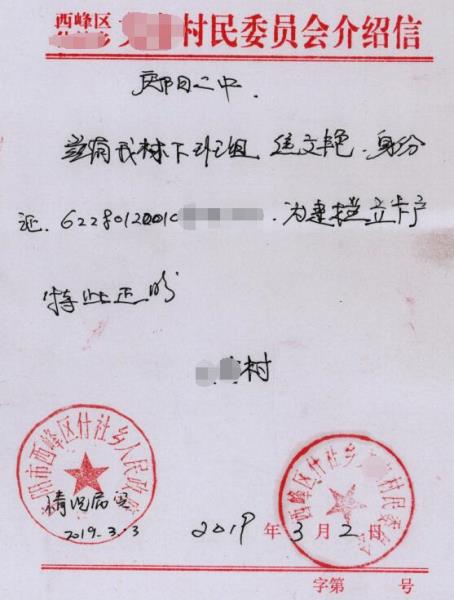 西峰区
什社乡
村民委员会介绍信
庆阳二中.
兹有我村下班组 焦文艳.身份
证.6228012001C .为建档立卡户
特此证明
村
阳市西峰区什社乡人民政府
情况属实
2019.3.3
西峰区什社乡 村民委员会
2019年3月2日
字第 号